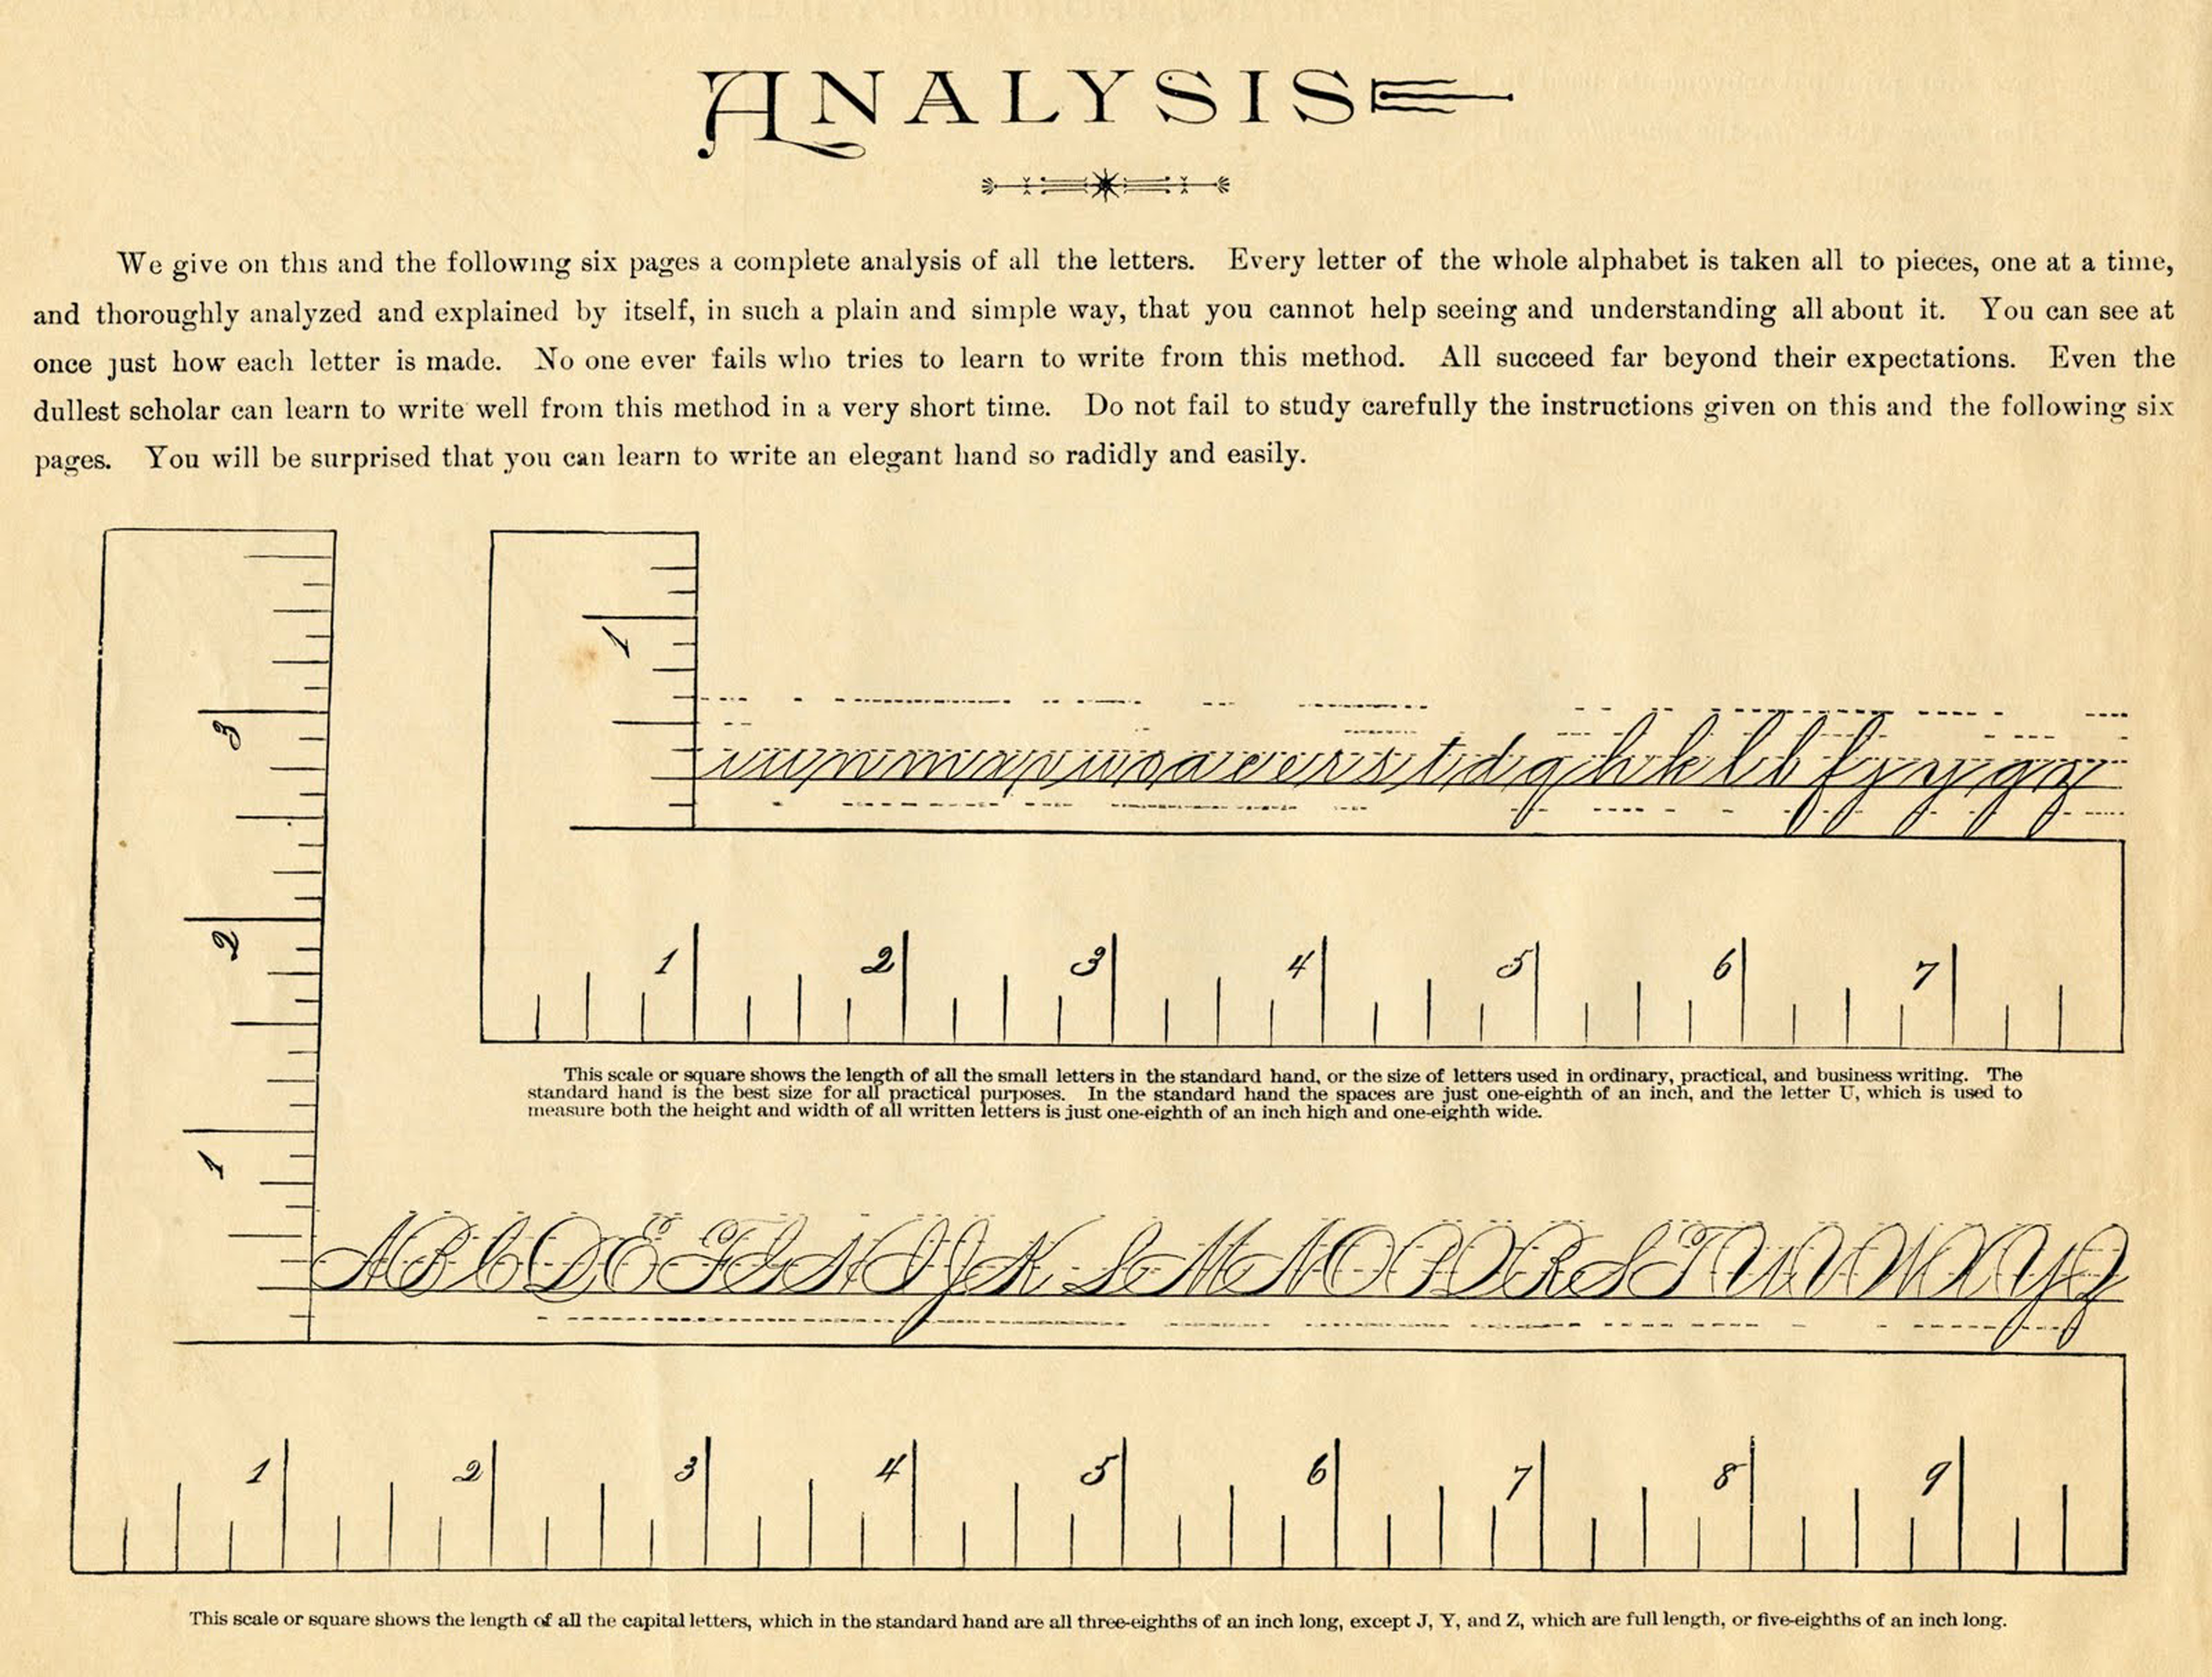 ANALYSIS
We give on this and the following six pages a complete analysis of all the letters. Every letter of the whole alphabet is taken all to pieces, one at a time,
and thoroughly analyzed and explained by itself, in such a plain and simple way, that you cannot help seeing and understanding all about it. You can see at
once just how each letter is made. No one ever fails who tries to learn to write from this method. All succeed far beyond their expectations. Even the
dullest scholar can learn to write well from this method in a very short time. Do not fail to study carefully the instructions given on this and the following six
pages. You will be surprised that you can learn to write an elegant hand so radidly and easily.
1
i u y n m x v w o a c e r s t d q h k l b f j y g z
1 2 3 4 5 6 7
This scale or square shows the length of all the small letters in the standard hand, or the size of letters used in ordinary, practical, and business writing. The
standard hand is the best size for all practical purposes. In the standard hand the spaces are just one-eighth of an inch, and the letter U, which is used to
measure both the height and width of all written letters is just one-eighth of an inch high and one-eighth wide.
3
2
1
A B C D E F G H I J K L M N O P Q R S T U V W X Y Z
1 2 3 4 5 6 7 8 9
This scale or square shows the length of all the capital letters, which in the standard hand are all three-eighths of an inch long, except J, Y, and Z, which are full length, or five-eighths of an inch long.